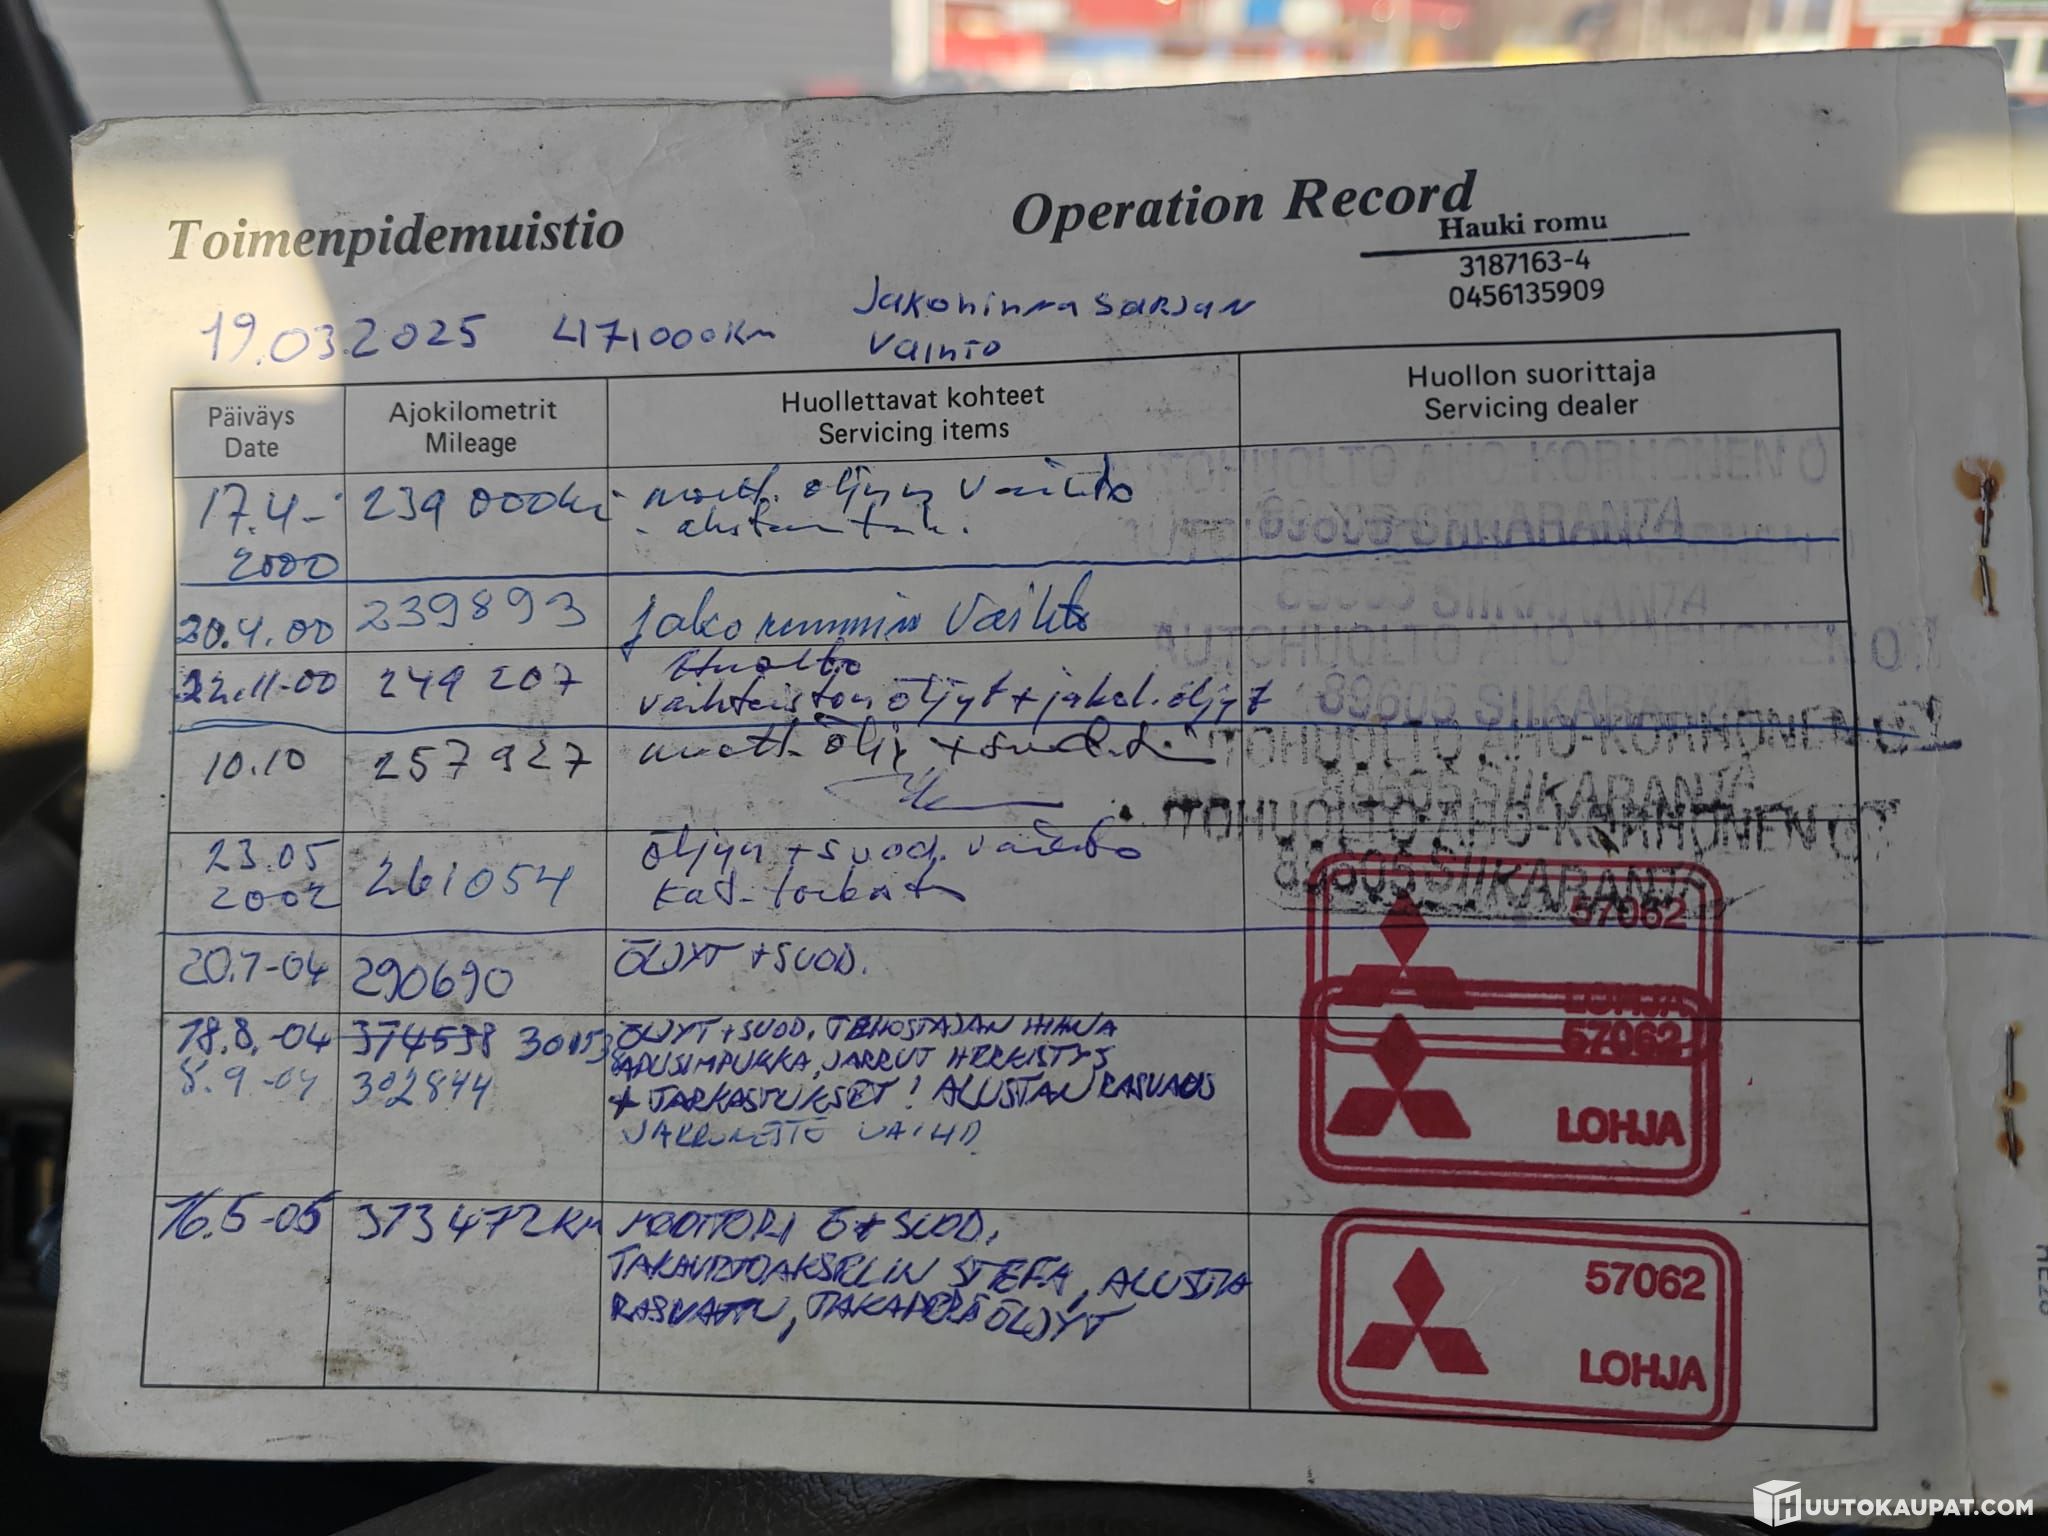 Toimenpidemuistio
Operation Record
Hauki romu
3187163-4
0456135909
19.03.2025 417,000km Jakohinna sarjan
vaihto
Päiväys
Date
Ajokilometrit
Mileage
Huollettavat kohteet
Servicing items
Huollon suorittaja
Servicing dealer
17.4-
2000
239 000km
öljyn vaihto
AUTOHUOLTO AHO-KORHONEN O
89605 SIIKARANTA
20.4.00 239893 jakoremmin vaihto
89605 SIIKARANTA
22.11-00 249 207 Huolto
vaihteiston öljyt + jakol. öljyt
AUTOHUOLTO AHO-KORHONEN OY
89605 SIIKARANTA
10.10 257927
UTOHUOLTO AHO-KORHONEN OY
89605 SIIKARANTA
23.05
2002
261054
öljyn + suod. vaihto
UTOHUOLTO AHO-KORHONEN OY
89605 SIIKARANTA
20.7-04 290690 ÖLJYT + SUOD.
57062
LOHJA
18.8.-04 374538 ÖLJYT + SUOD, TEHOSTAJAN HIHNA
APUSIMPUKKA, JARRUT HERKISTYS
8.9-04 302844
+ TARKASTUKSET! ALUSTAN RASVAUS
JARRUNESTE VAIHD.
57062
LOHJA
16.5-05 373472KM MOOTTORI Ö+SUOD,
TAKAVETOAKSELIN STEFA, ALUSTA
RASVATTU, TAKAPERÄ ÖLJYT
57062
LOHJA
HUUTOKAUPAT.COM